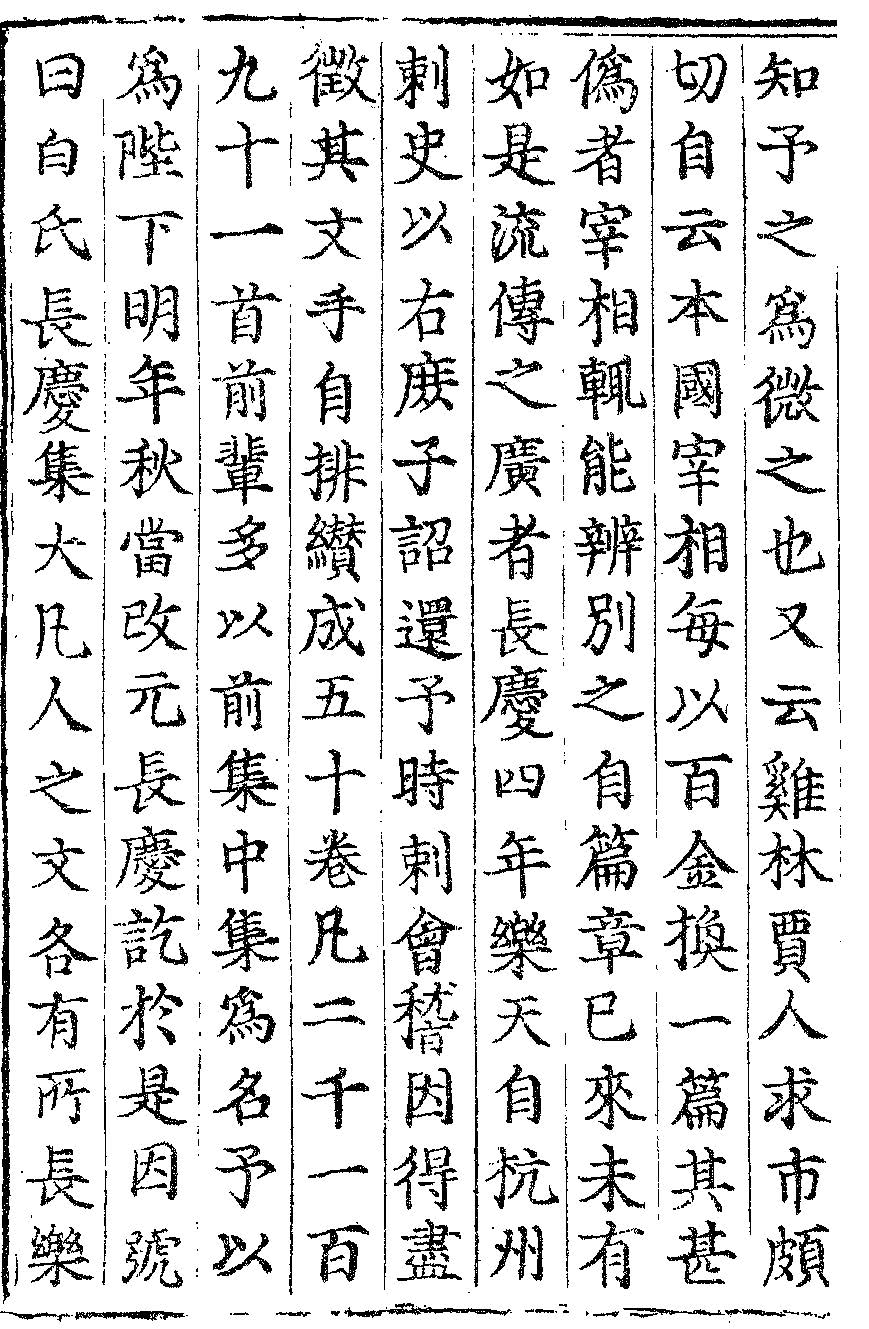 知予之爲微之也又云雞林賈人求市頗
切自云本國宰相每以百金換一篇其甚
僞者宰相輒能辨別之自篇章已來未有
如是流傳之廣者長慶四年樂天自杭州
刺史以右庶子詔還予時刺會稽因得盡
徵其文手自排纘成五十卷凡二千一百
九十一首前輩多以前集中集爲名予以
爲陛下明年秋當改元長慶訖於是因號
曰白氏長慶集大凡人之文各有所長樂